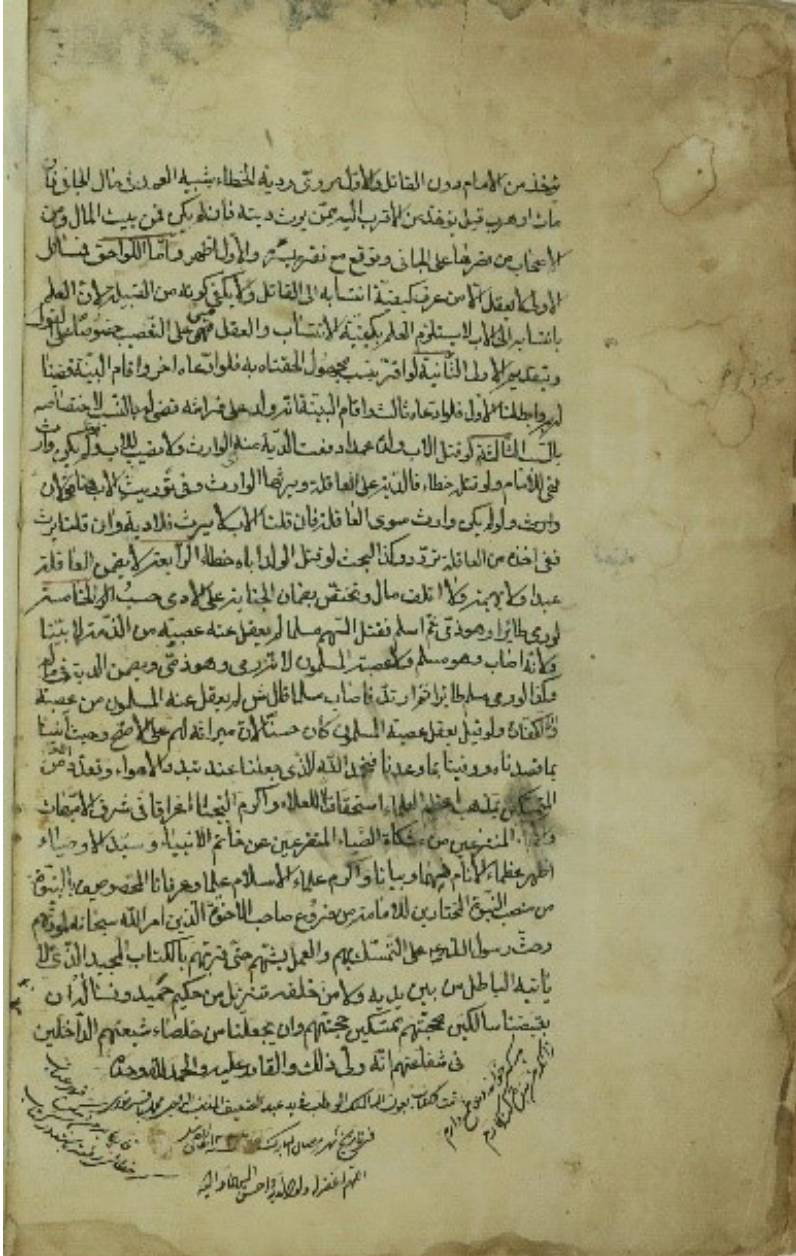 يؤخذ من الامام دون القاتل والاول مروي ودية الخطاء شبيه العمد في مال الجاني فان
مات او هرب قيل يؤخذ من الاقرب اليه ممن يرث ديته فان لم يكن فمن بيت المال ومن
الاصحاب من قصرها على الجاني وتوقع مع فقره يسره والاول اظهر واما اللواحق فمسائل
الاولى لا يعقل الا من عرف كيفية انتسابه الى القاتل ولا يكفي كونه من القبيلة لان العلم
بانتسابه الى الاب لا يستلزم العلم بكيفية الانتساب والعقل مبني على التعصيب خصوصا على القول
بتقديم الاولى الثانية لو اقر بنسب مجهول الحقناه به فلو ادعاه اخر واقام البينة قضينا
له به وابطلنا الاول فلو ادعاه ثالث واقام البينة انه ولد على فراشه قضي له بالنسب لاختصاصه
بالسبب الثالثة لو قتل الاب ولده عمدا دفعت الدية منه الى الوارث ولا نصيب للاب ولو لم يكن وارث
فهي للامام ولو قتله خطاء فالدية على العاقلة ويرثها الوارث وفي توريث الاب هنا قولان
ولو لم يكن وارث سوى العاقلة فان قلنا الاب لا يرث فلا دية وان قلنا يرث
ففي اخذه من العاقلة تردد وكذا البحث لو قتل الولد اباه خطاء الرابعة لا يضمن العاقلة
عبدا ولا بهيمة ولا اتلاف مال وتختص بضمان الجناية على الادمي حسب الخامسة
لو رمى طايرا وهو ذمي ثم اسلم فقتل السهم مسلما لم يعقل عنه عصبته من الذمة لما بينا
ولانه اصاب وهو مسلم ولا عصبته المسلمون لانه رمى وهو ذمي ويضمن الدية في ماله
وكذا لو رمى مسلم طايرا ثم ارتد فاصاب مسلما قال ش لم يعقل عنه المسلمون من عصبته
ولا الكفار ولو قيل يعقل عصبته المسلمون كان حسنا لان ميراثه لهم على الاصح وحيث اتينا
بما قصدناه ووفينا بما وعدنا فنحمد الله الذي جعلنا عند تبدد الاهواء وتعدد الاراء من
المتمسكين بمذهب اعظم العلماء استحقاقا للعلاء واكرم النجباء اغراقا في شرف الاباء
المنتزعين من مشكاة الضياء المتفرعين عن خاتم الانبياء وسيد الاوصياء
اظهر عظماء الانام فهما وبيانا واكرم علماء الاسلام علما وعرفانا المخصوصين بالنبوة
من منصب النبوة المختارين للامامة من فروع صاحب الاخوة الذين امر الله سبحانه بمودتهم
وحث رسول الله على التمسك بهم والعمل بسنتهم حتى قرنهم بالكتاب المجيد الذي لا
ياتيه الباطل من بين يديه ولا من خلفه تنزيل من حكيم حميد ونسأل الله ان
يقبضنا سالكين محجتهم متمسكين بحجتهم وان يجعلنا من خلصاء شيعتهم الداخلين
في شفاعتهم انه ولي ذلك والقادر عليه والحمد لله وحده
تمت الكتاب بعون الملك الوهاب عبد الضعيف المذنب محمد باقر
في تاريخ شهر رمضان المبارك
اللهم اغفر له ولوالديه واحسن اليهما واليه